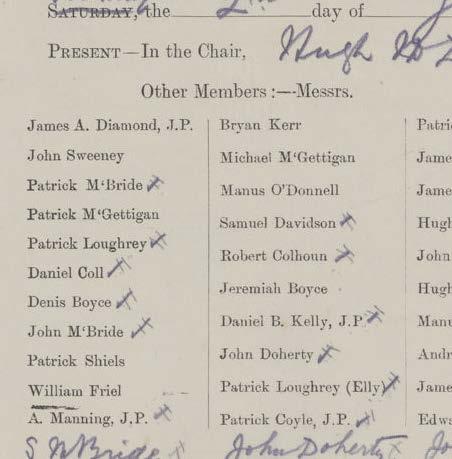 SATURDAY, the day of
PRESENT—In the Chair, Hugh
Other Members:—Messrs.
James A. Diamond, J.P.
John Sweeney
Patrick M'Bride
Patrick M'Gettigan
Patrick Loughrey
Daniel Coll
Denis Boyce
John M'Bride
Patrick Shiels
William Friel
A. Manning, J.P.
S M'Bride
Bryan Kerr
Michael M'Gettigan
Manus O'Donnell
Samuel Davidson
Robert Colhoun
Jeremiah Boyce
Daniel B. Kelly, J.P
John Doherty
Patrick Loughrey (Elly)
Patrick Coyle, J.P.
John Doherty
Patri
Jame
Jame
Hugh
John
Hugh
Manu
Andr
Jame
Edwa
Jo